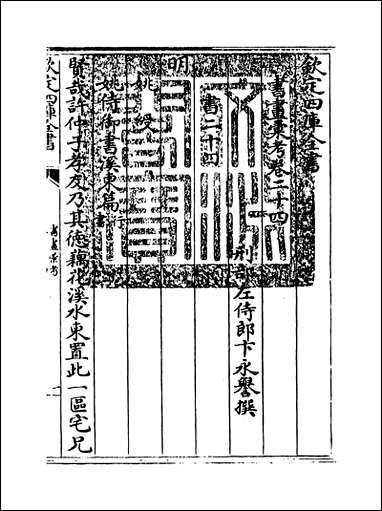 欽定四庫全書
書畫彙考卷二十四
刑部左侍郎卞永譽撰
書二十四
明
姚綬
姚侍御書溪東篇
賢哉許仲子孝友乃其德藕花溪水東置此一區宅兄
欽定四庫全書
書畫彙考